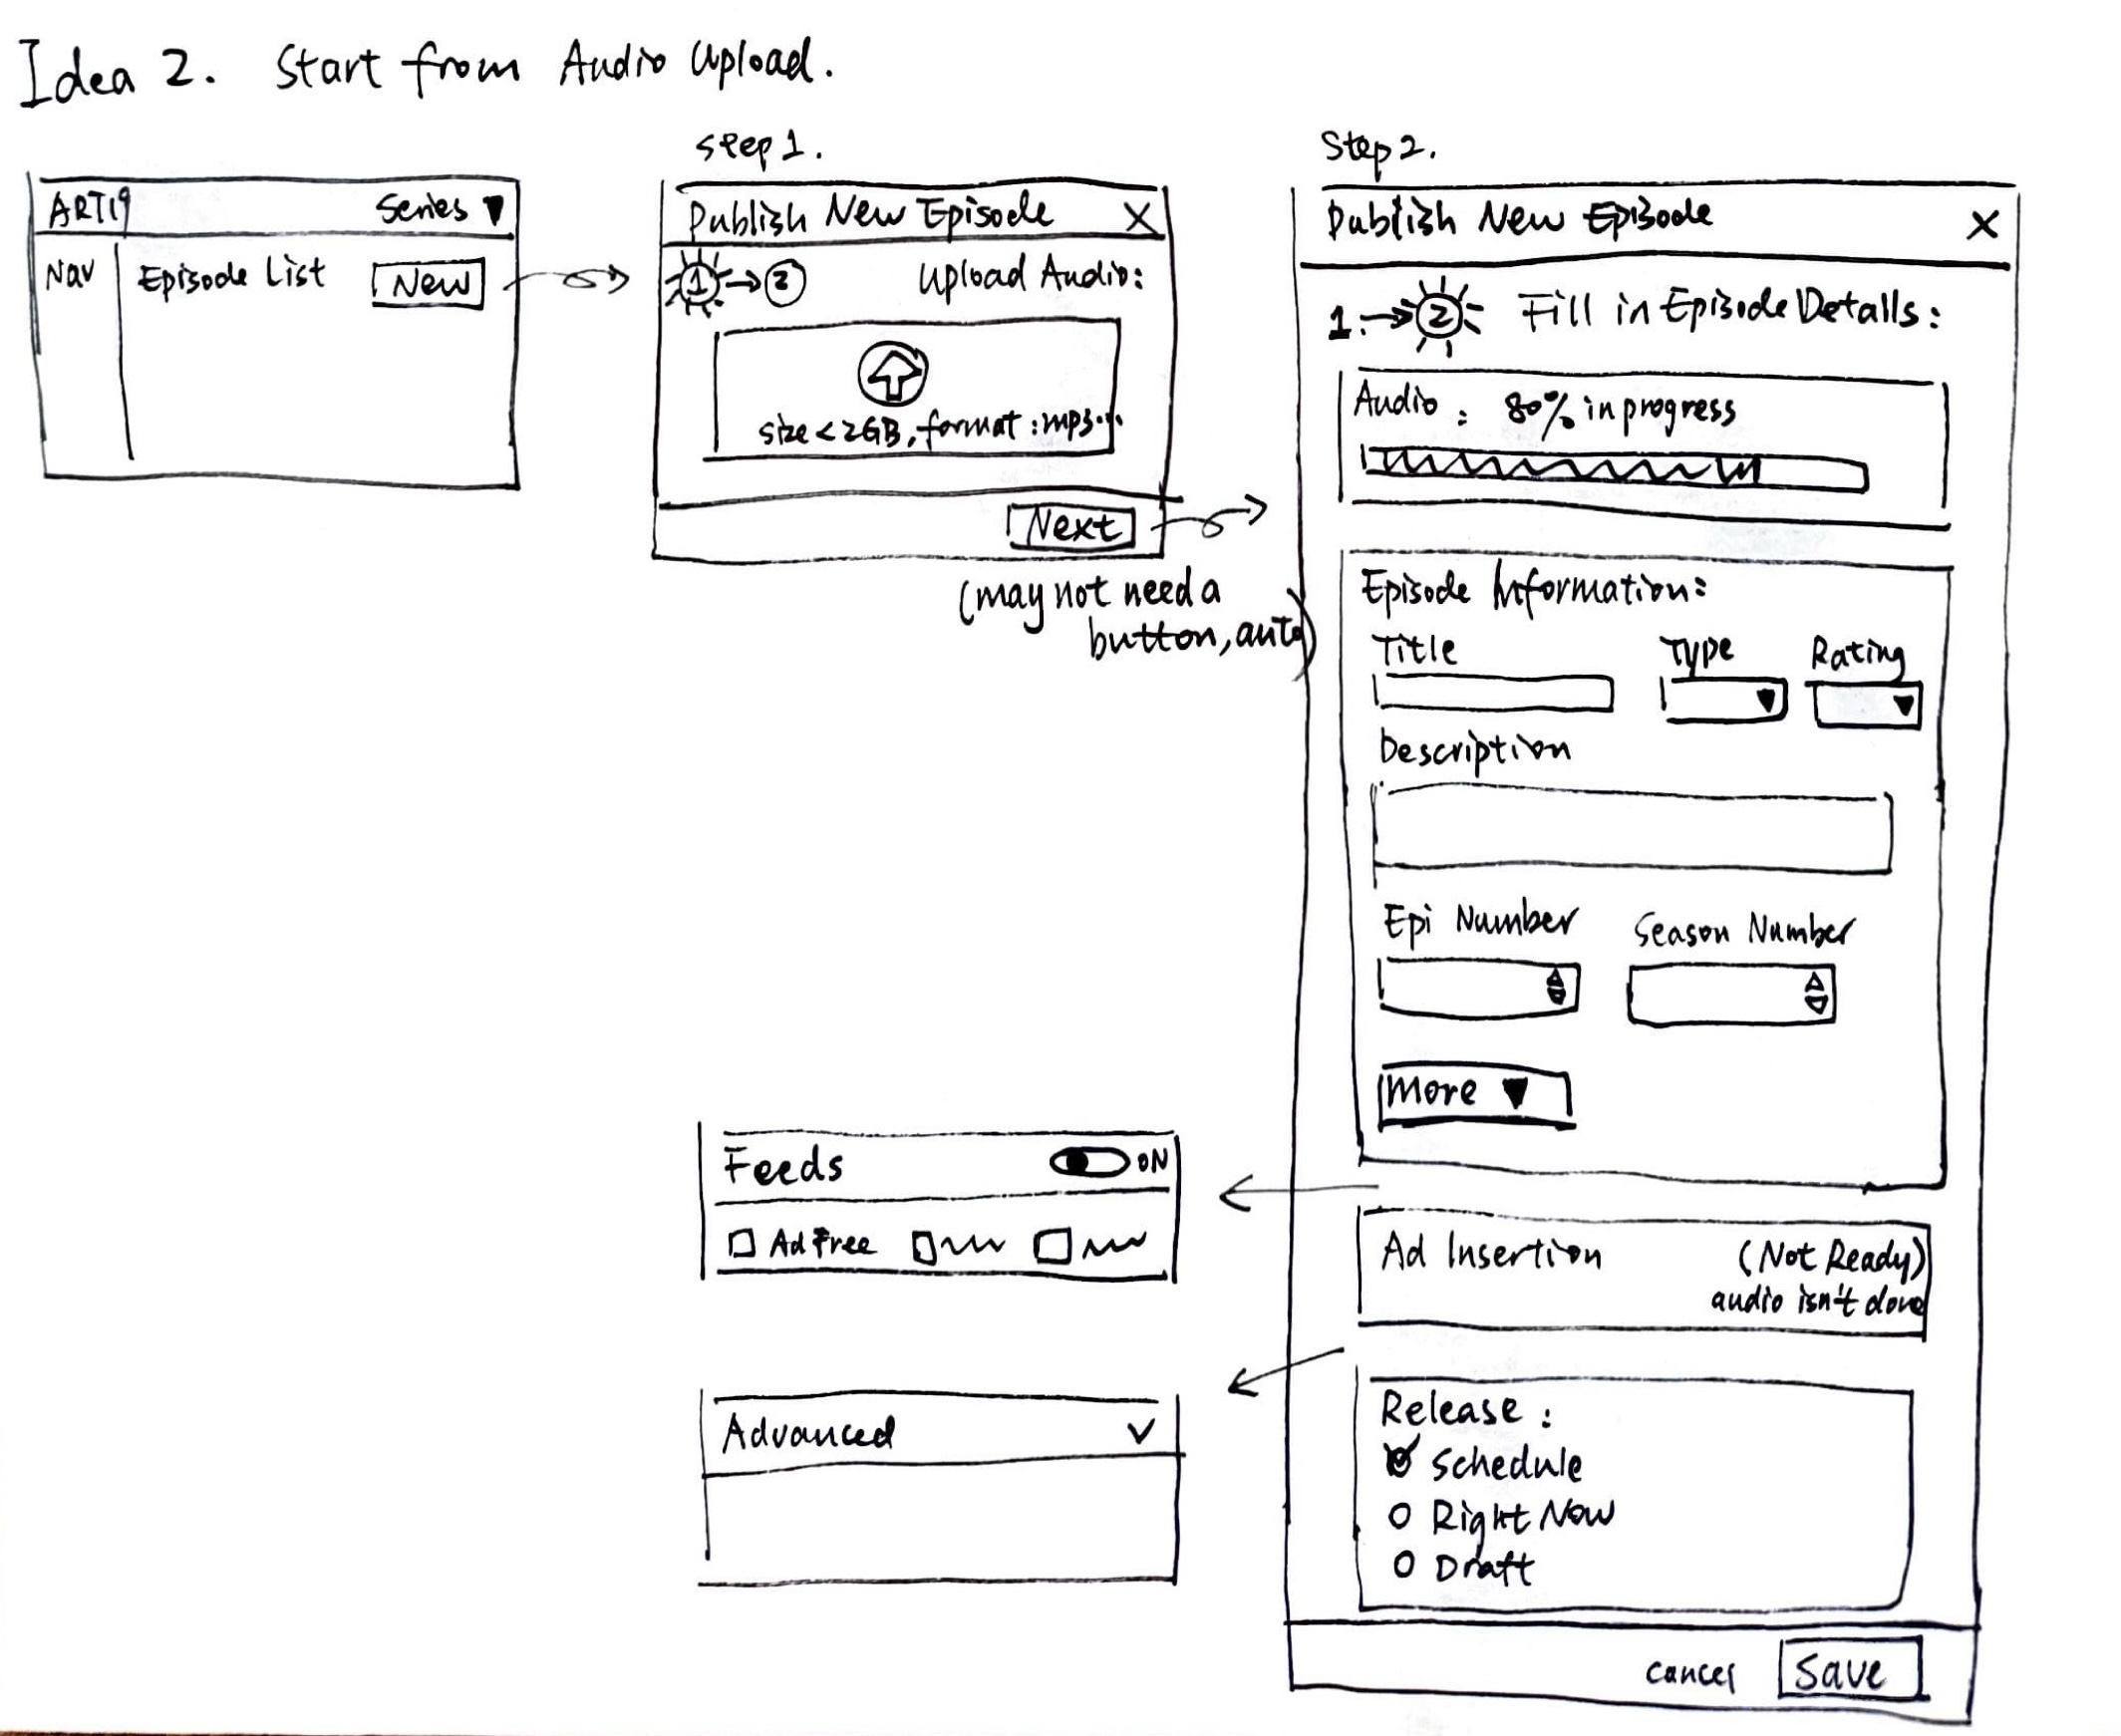 Idea 2. Start from Audio Upload.
ART19 Series
Nav Episode List New
Step 1.
Publish New Episode X
1 → 2 Upload Audio:
size < 2GB, format: mp3...
Next
(may not need a
button, auto)
Step 2.
Publish New Episode X
1. → 2 Fill in Episode Details:
Audio: 80% in progress
Episode Information:
Title Type Rating
Description
Epi Number Season Number
More
Feeds ON
Ad Free
Ad Insertion (Not Ready)
audio isn't done
Advanced
Release:
Schedule
Right Now
Draft
Cancel Save